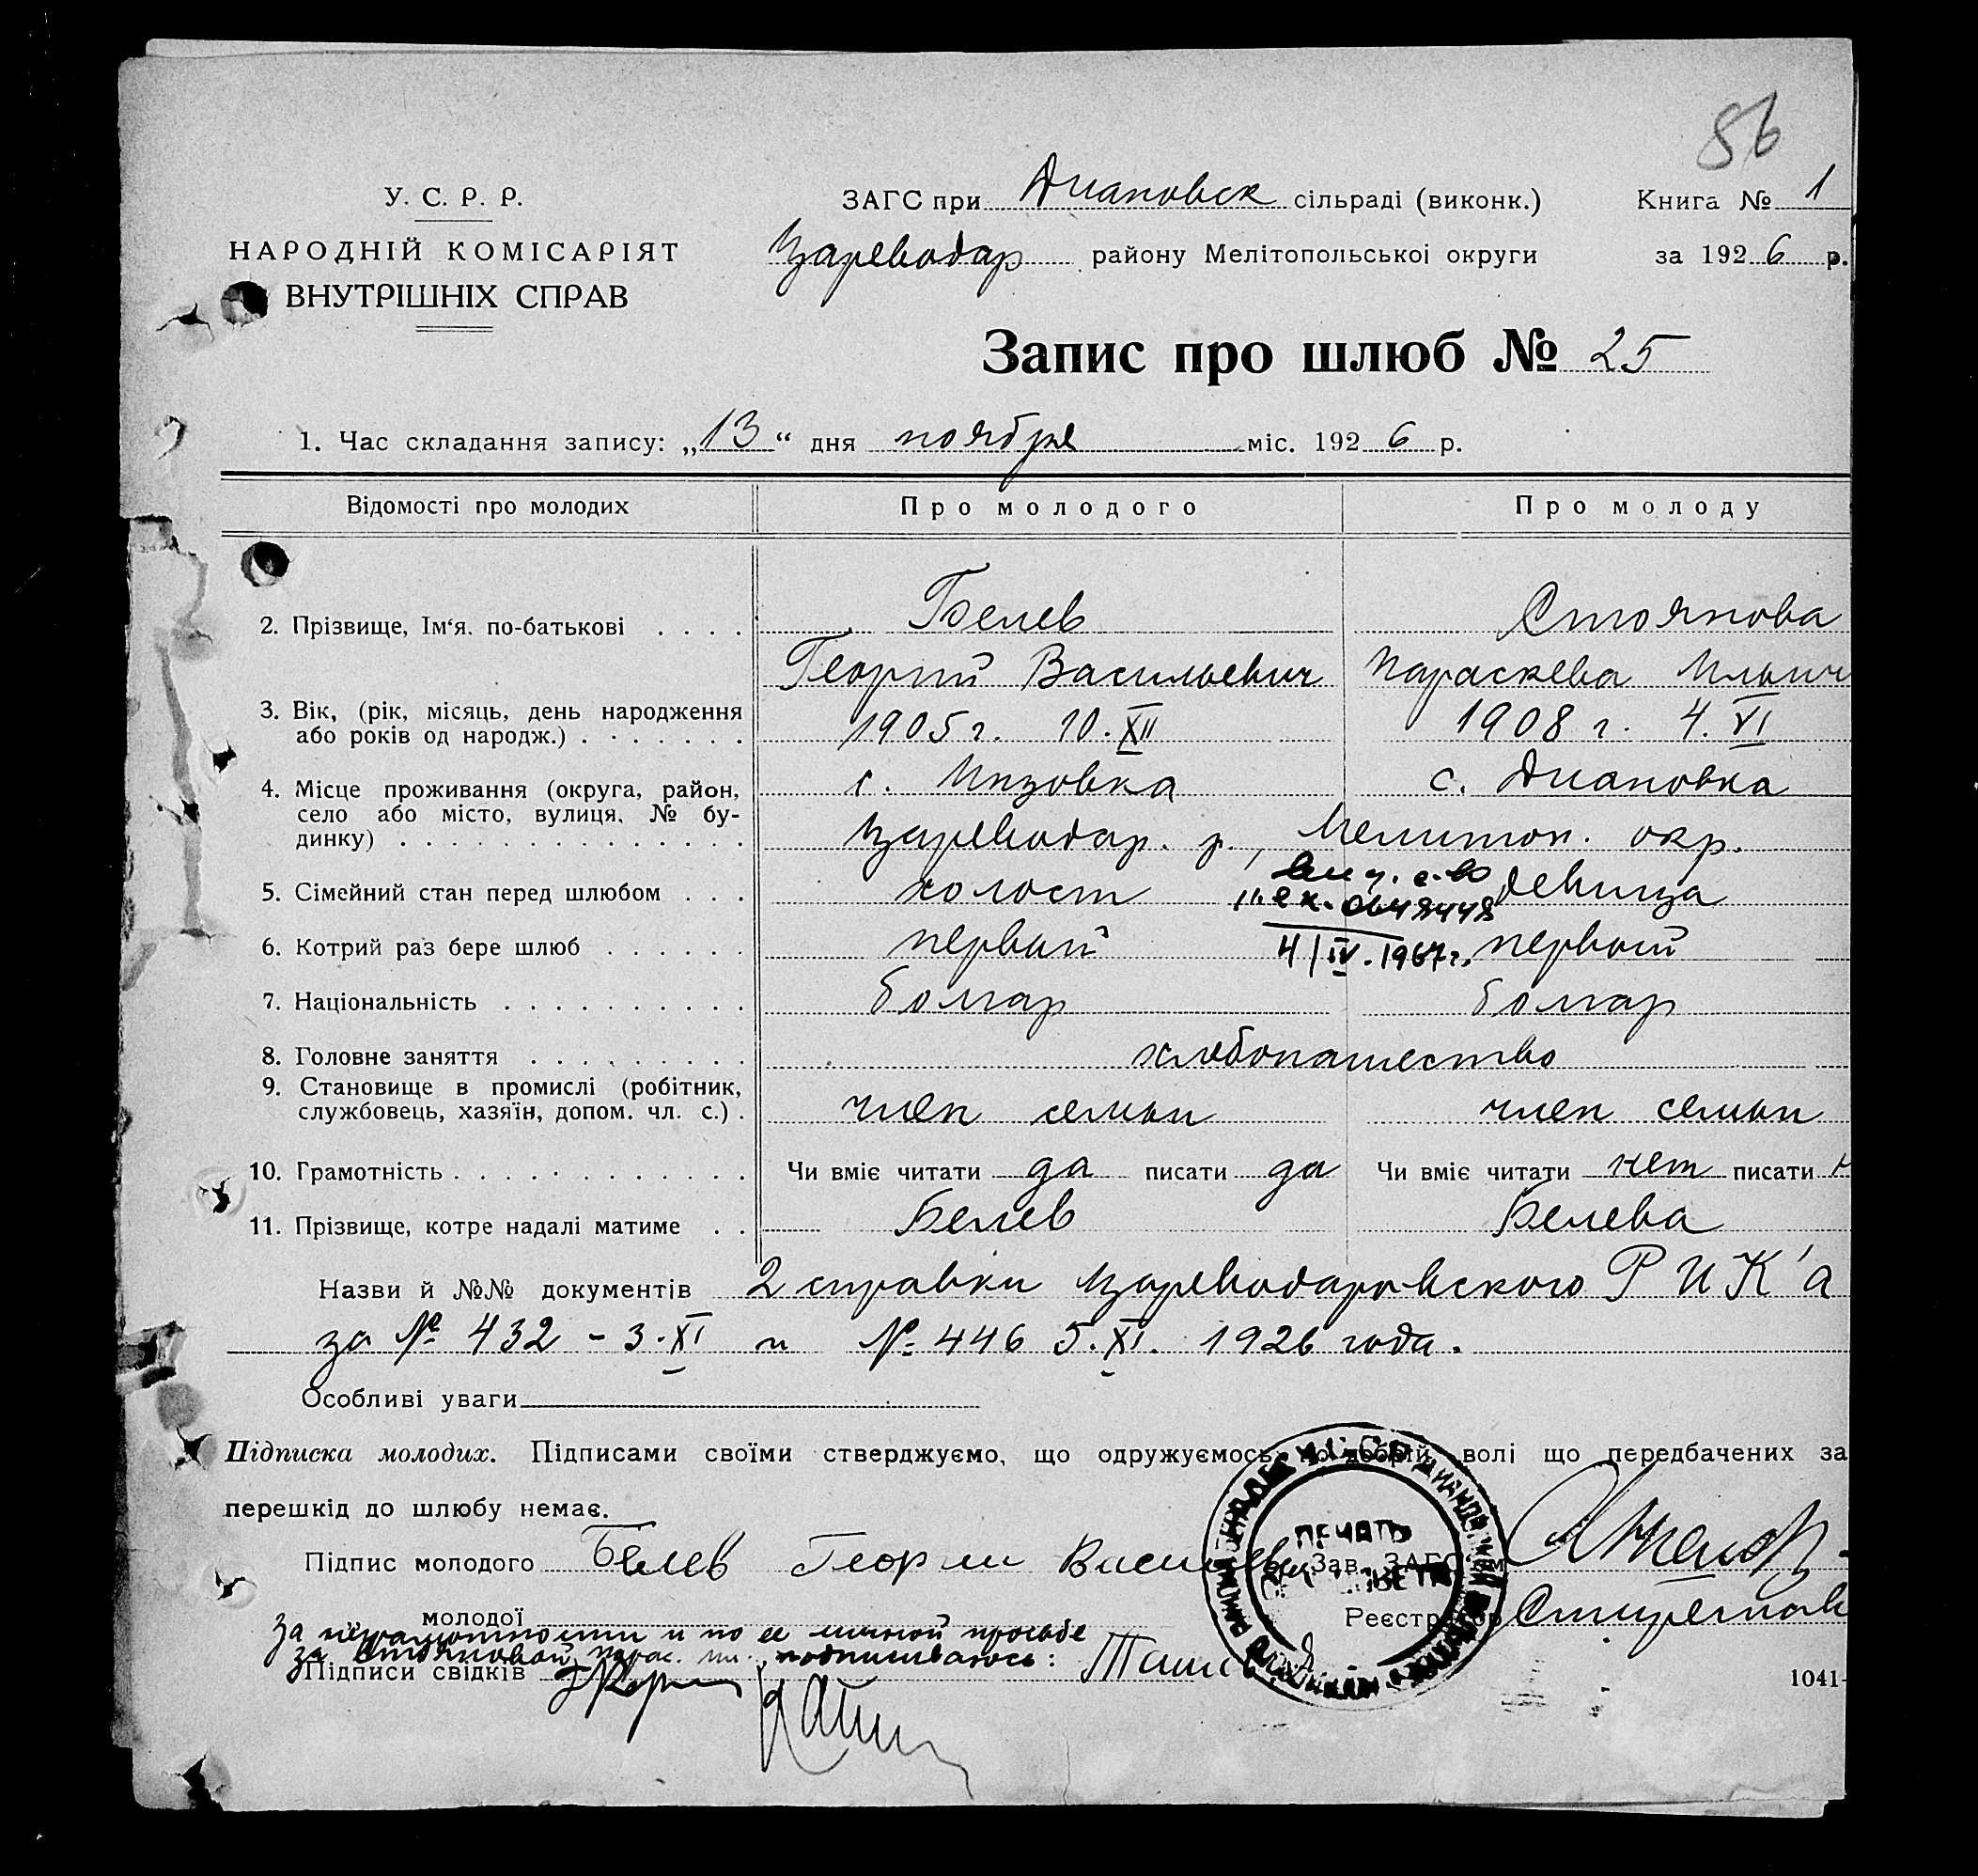 86
У. С. Р. Р.
НАРОДНІЙ КОМІСАРІЯТ
ВНУТРІШНІХ СПРАВ
ЗАГС при Диановск сільраді (виконк.)
Книга № 1
Цареводар району Мелітопольськоі округи
за 1926 р.
Запис про шлюб № 25
1. Час складання запису: „13“ дня ноября міс. 1926 р.
Відомості про молодих Про молодого Про молоду
2. Прізвище, Ім‘я. по-батькові . . . . Белев Стоянова
Георгий Васильевич Параскева Ильин
3. Вік, (рік, місяць, день народження
або років од народж.) . . . . . . . 1905 г. 10. XII 1908 г. 4. VI
4. Місце проживання (округа, район,
село або місто, вулиця, № бу-
динку) . . . . . . . . . . . . . .
с. Инзовка с. Диановка
Цареводар. р., Мелитоп. окр.
5. Сімейний стан перед шлюбом . . . холост девица
выд. с-во
4/IV. 1967г.
6. Котрий раз бере шлюб . . . . . . первый первый
7. Національність . . . . . . . . . . болгар болгар
8. Головне заняття . . . . . . . . . хлебопашество
9. Становище в промислі (робітник,
службовець, хазяїн, допом. чл. с.) . член семьи член семьи
10. Грамотність . . . . . . . . . . . Чи вміє читати да писати да Чи вміє читати нет писати н
11. Прізвище, котре надалі матиме . . Белев Белева
Назви й №№ документів 2 справки Цареводаровского РИК'а
за № 432 - 3. XI и № 446 5. XI. 1926 года.
Особливі уваги
Підписка молодих. Підписами своїми стверджуємо, що одружуємось по добрій волі що передбачених за
перешкід до шлюбу немає.
ПЕЧАТЬ
Підпис молодого Белев Георги Василев Зав. ЗАГС'ом
молодої Реєстратор
За неграмотностью и по ее личной просьбе
за Стояновой Парас. Ил. подписываюсь:
Підписи свідків
1041-